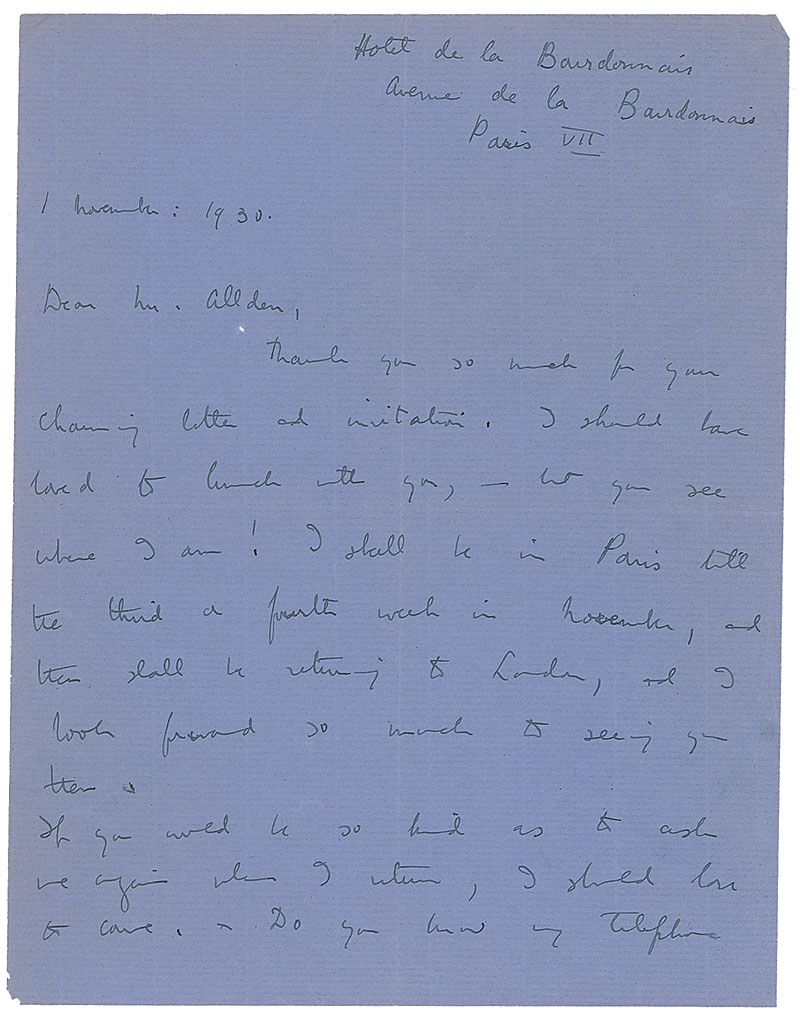 Hotel de la Bourdonnais
Avenue de la Bourdonnais
Paris VII
1 November: 1930.
Dear Mr. Allden,
Thank you so much for your
charming letter and invitation. I should have
loved to lunch with you, – but you see
where I am! I shall be in Paris till
the third or fourth week in November, and
then shall be returning to London, and I
look forward so much to seeing you
then.
If you would be so kind as to ask
me again when I return, I should love
to come. – Do you know my telephone